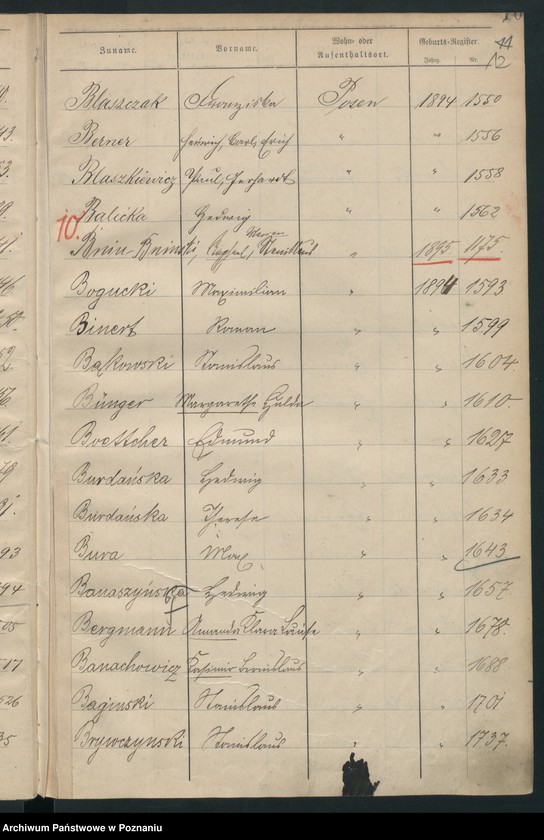 11
12
Zuname. Vorname. Wohn- oder Aufenthaltsort. Geburts-Register.
Jahrg. Nr.
Blaszczak Franziska Posen 1894 1550
Berner Heinrich, Carl, Erich " " 1556
Blaszkiewicz Paul, Gerhardt " " 1558
Balicka Hedwig " " 1562
10. Bnin-Bninski, Stanislaus " 1895 1175.
Bogucki Maximilian " 1894 1593
Binert Roman " " 1599
Bąkowski Stanislaus " " 1604
Bünger Margarethe Hulda " " 1610
Boettcher Edmund " " 1627
Burdańska Hedwig " " 1633
Burdańska Therese " " 1634
Bura Max. " " 1643
Banaszyńska Hedwig " " 1657
Bergmann Amanda Klara Luise " " 1678.
Banachowicz Kasimir " " 1688
Baginski Stanislaus " " 1701
Brywczynski Stanislaus " " 1737.
Archiwum Państwowe w Poznaniu